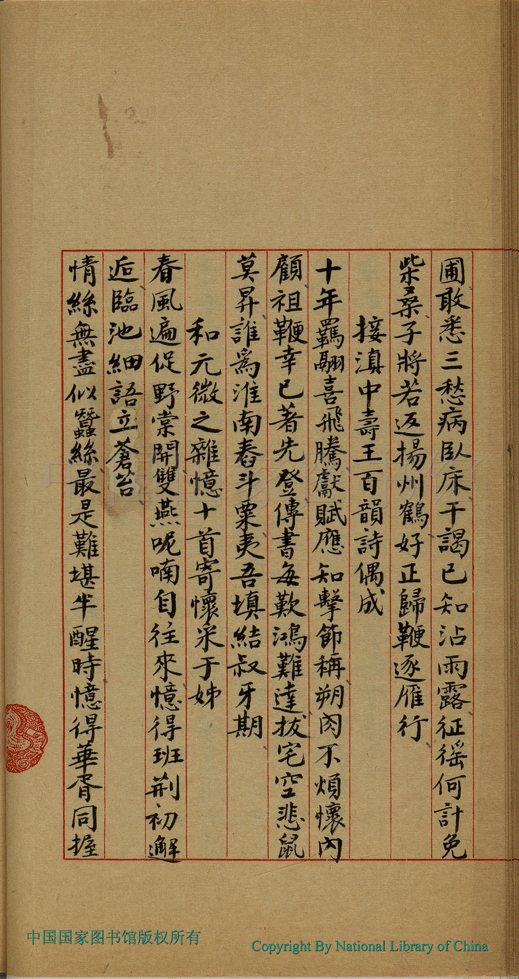 圃敢悉三愁病臥床干謁已知沾雨露征徭何計免
柴桑子將若返揚州鶴好正歸鞭逐雁行
接滇中壽王百韻詩偶成
十年羈翮喜飛騰獻賦應知擊節稱朔肉不煩懷內
顧祖鞭幸已著先登傳書每歎鴻難達拔宅空悲鼠
莫昇誰爲淮南舂斗粟夷吾填結叔牙期
和元微之雜憶十首寄懷采于姊
春風遍促野棠開雙燕呢喃自往來憶得班荆初邂
逅臨池細語立蒼苔
情絲無盡似蠶絲最是難堪半醒時憶得華胥同握
中国国家图书馆版权所有
Copyright By National Library of China